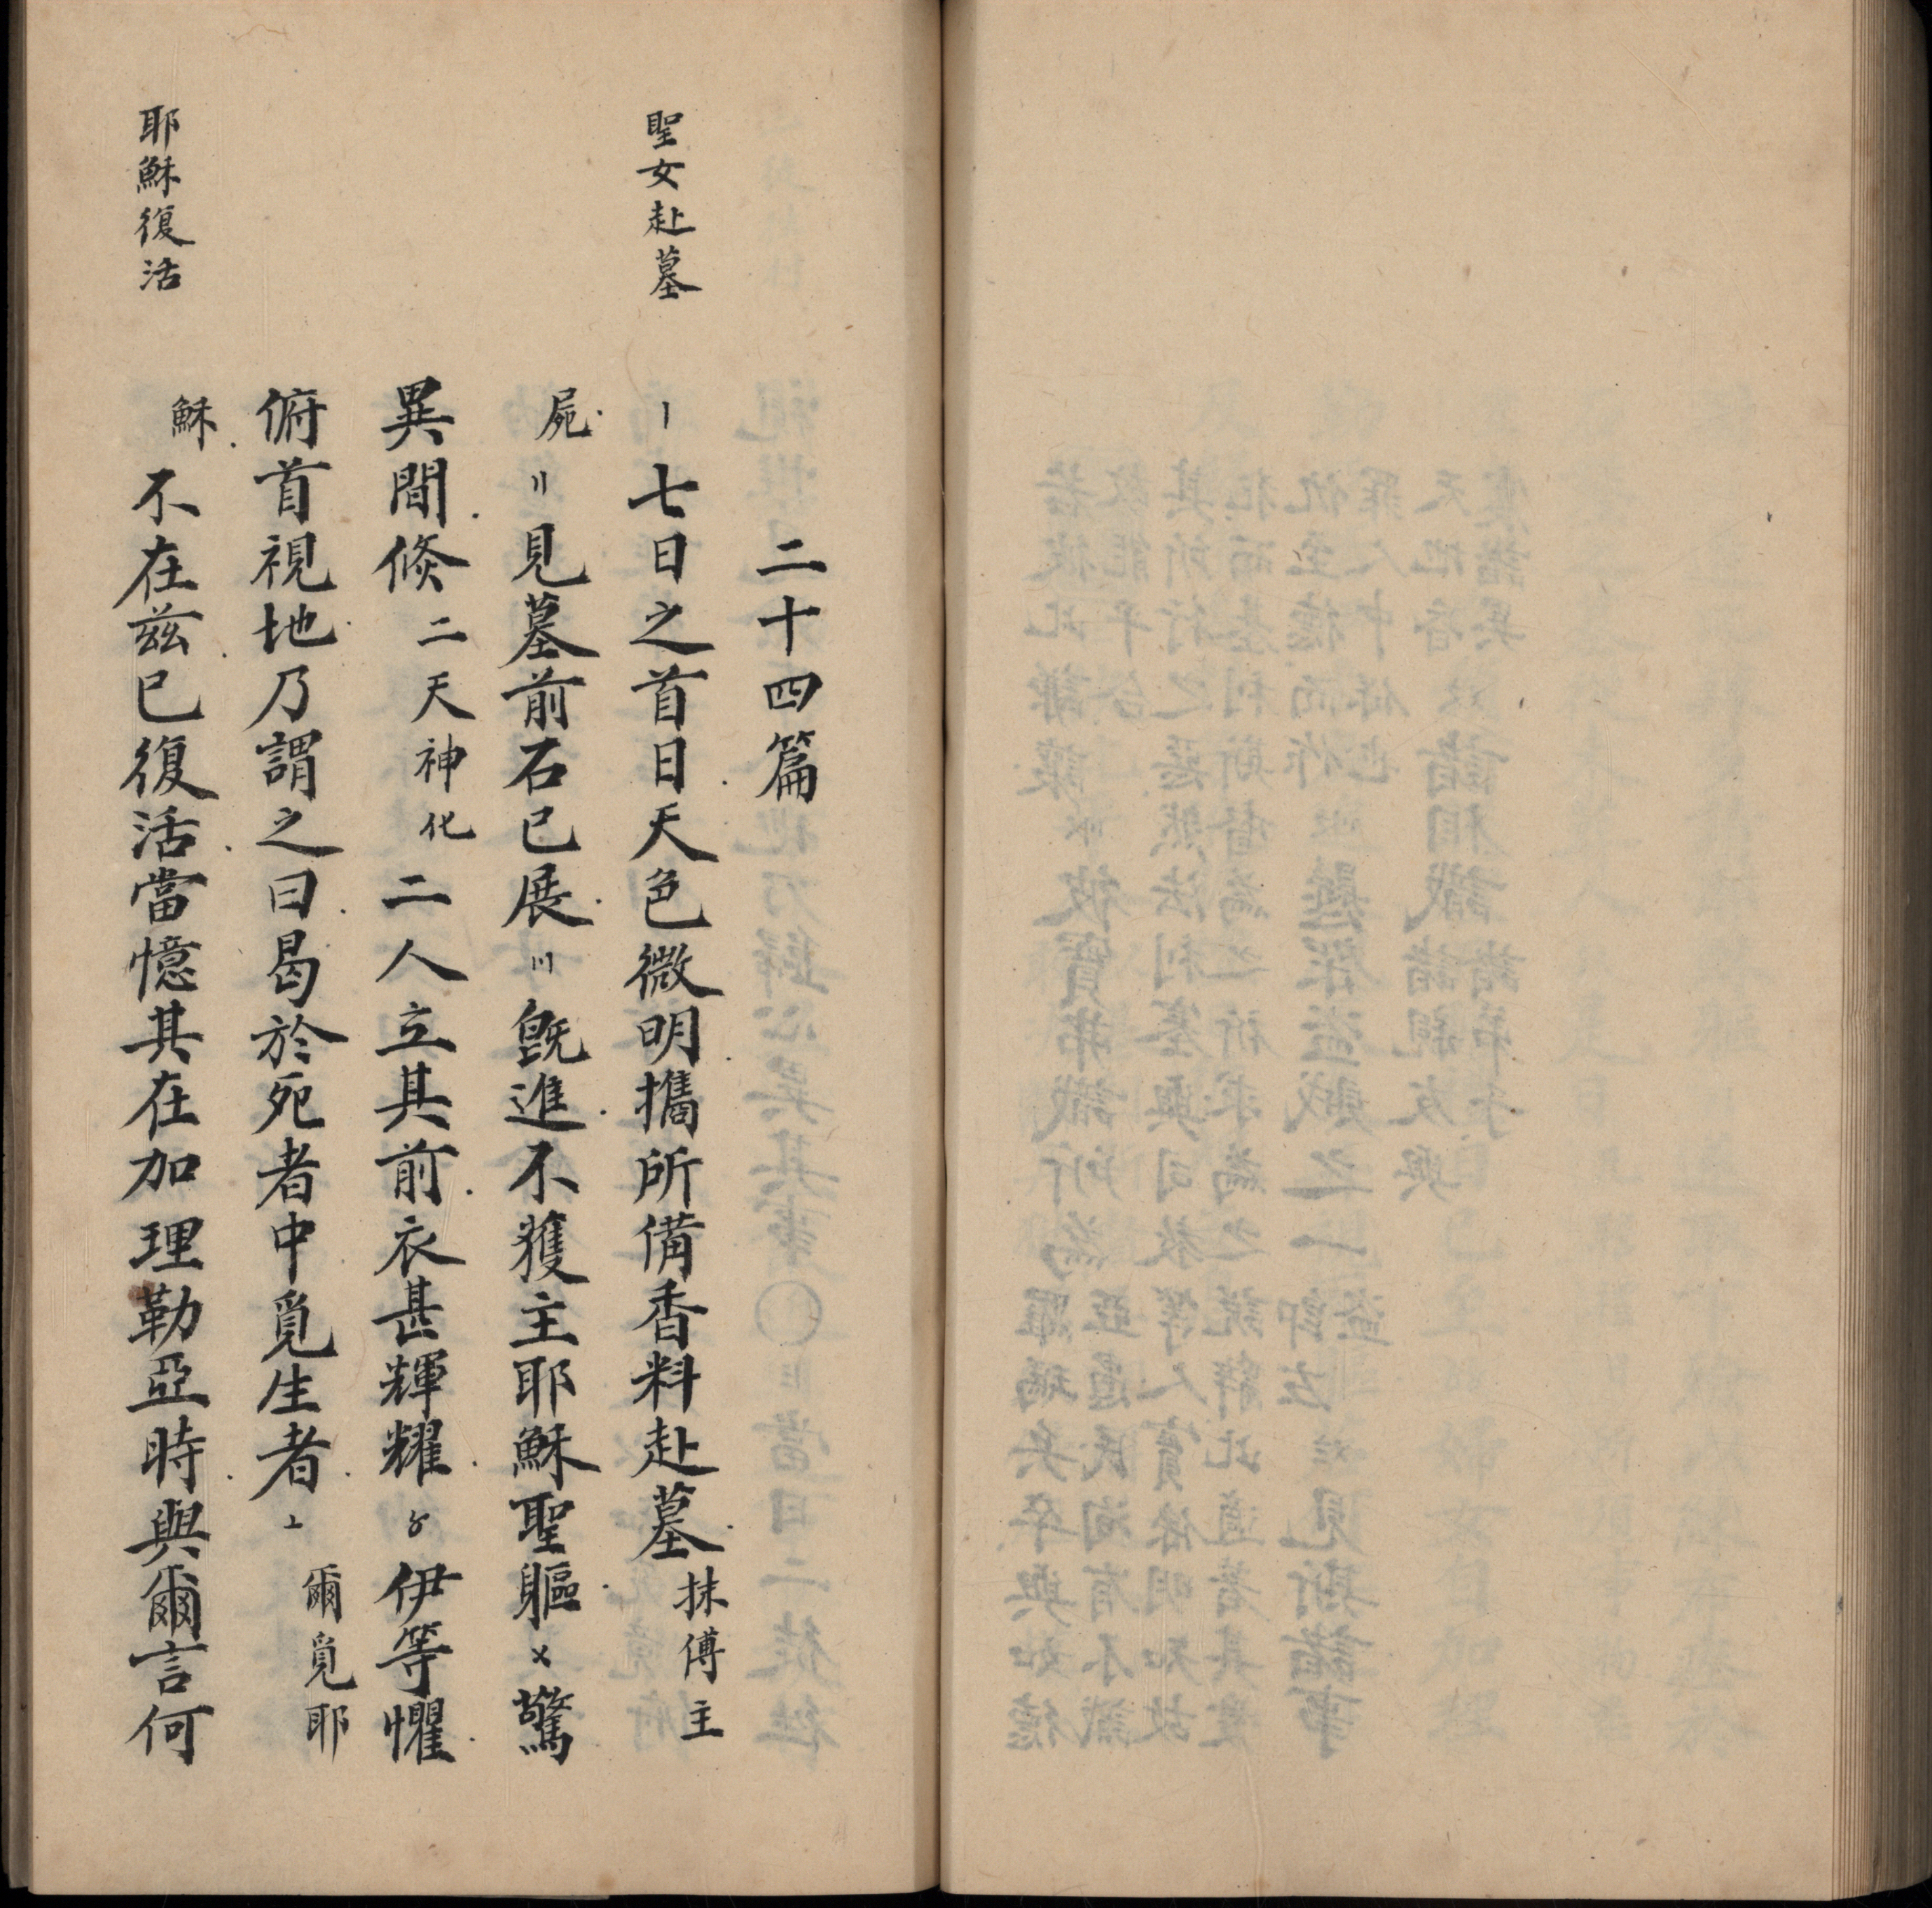 聖女赴墓
耶穌復活
二十四篇
〡七日之首日天色微明攜所備香料赴墓抹傅主
屍〢見墓前石已展〣旣進不獲主耶穌聖軀〤驚
異間倐二天神化二人立其前衣甚輝耀〥伊等懼
俯首視地乃謂之曰曷於死者中覓生者〦爾覓耶
穌不在茲已復活當憶其在加理勒亞時與爾言何